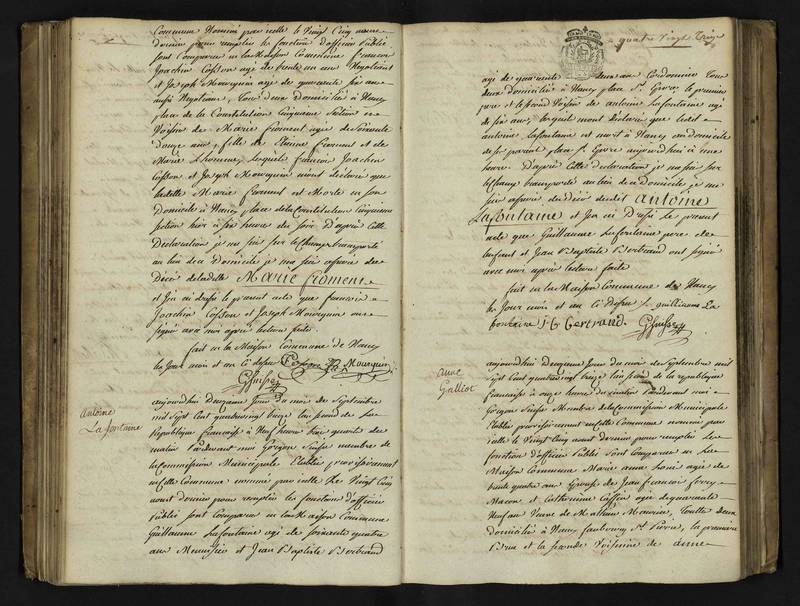 Commune nommé par icelle le Vingt Cinq aout
dernier pour remplir le fonction d'officier Public
sont comparu en la Maison Commune francois
Joachin Cosson agé de trente un ans Negotiant
et Joseph Mourquin agé de quarante six ans
aussi Negotiant, tous deux domiciliés à Nancy
place de la Constitution Cinquieme Section et
Voisin de Marie froment agée de Soixante
douze ans, fille de Etienne froment et de
Marie Lhomme, lesquels francois Joachin
Cosson et Joseph Mourquin m'ont déclaré que
ladite Marie froment est Morte en son
Domicile à Nancy place de la Constitution Cinquieme
section hier à six heures du soir D'après cette
Déclaration je me suis sur le Champ transporté
au lieu de ce Domicile je me suis assuré du
Décé de ladite Marie froment
et j'en ai dressé le present acte que francois
Joachin Cosson et Joseph Mourquin ont
signé avec moi après lecture faite.
fait en la Maison Commune de Nancy
les Jour mois et an Ci dessus Mourquin
GSuisse
Antoine
La fontaine
aujourdhui Deuxieme Jour du mois de Septembre
mil sept Cent quatrevingt treize l'an second de La
Republique francoise à Neuf heures trois quarts du
matin Pardevant moi Gorgon Suisse membre de
la Commission Municipale Etablie provisoirement
en Cette Commune nommé par icelle Le Vingt Cinq
aout dernier pour remplir les fonction d'officier
Public sont Comparu en la Maison Commune
Guillaume Lafontaine agé de soixante quatre
ans Menuisier et Jean Baptiste Bertrand
quatre Vingt Treize
agé de quarante deux ans Cordonnier tous
deux domiciliés à Nancy place St. Epvre, le premier
pere et le second Voisin de antoine Lafontaine agé
de six ans, lesquels m'ont déclaré que ledit
antoine Lafontaine est mort à Nancy au domicile
de ses parents place St. Epvre aujourdhui à une
heure. D'après Cette Declaration je me suis sur
le champ transporté au lieu de ce domicile je me
suis assuré du Décé dudit antoine
Lafontaine et j'en ai Dressé le present
acte que Guillaume Lafontaine pere de
l'enfant et Jean Baptiste Bertrand ont signé
avec moi après lecture faite
fait en la Maison Commune de Nancy
les Jour mois et an Ci dessus guilliaume La
fontaine J B Bertrand. GSuisse
anne
Galliot
aujourdhui Deuxieme Jour du mois de Septembre mil
sept Cent quatrevingt treize l'an second de la republique
francoise à onze heures du matin Pardevant moi
Gorgon Suisse Membre de la Commission Municipale
Etablie provisoirement en Cette Commune nommé par
icelle le Vingt Cinq aout dernier pour remplir Les
fonction d'officier Public sont Comparu en La
Maison Commune Marie anne agée de
trente quatre ans Epouse de Jean francois
Macon et Catherine agée de quarante
Neuf ans Veuve de Mathieu Mourier, toutte deux
domiciliés à Nancy faubourg St Pierre, la premiere
et la seconde Voisinne de anne